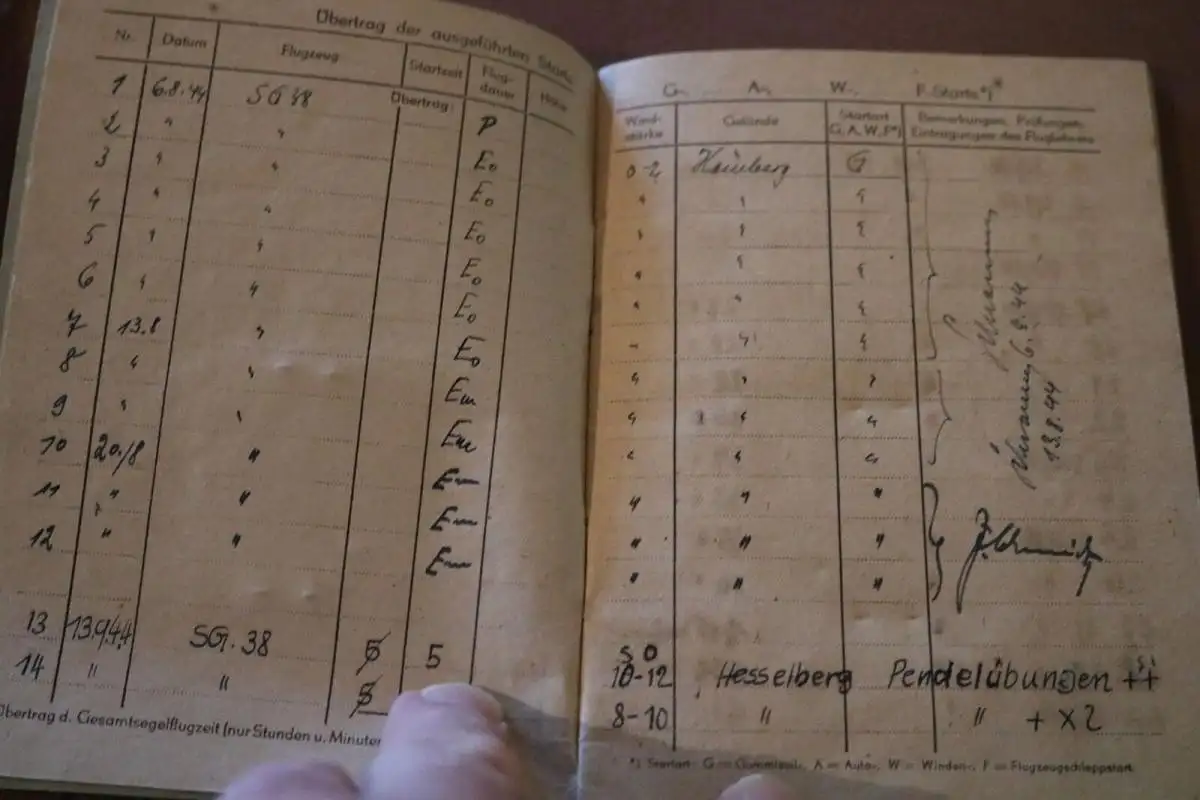 Übertrag der ausgeführten Starts
Nr. Datum Flugzeug Startzeit Flug-dauer Höhe
Übertrag:
1 6.8.44 SG 38 P
2 " " E₀
3 " " E₀
4 " " E₀
5 " " E₀
6 " " E₀
7 13.8 " E₀
8 " " Em
9 " " Em
10 20./8 " Em
11 " " Em
12 " " Em
13 13.9.44 SG. 38 5 5
14 " " 5
Übertrag d. Gesamtsegelflugzeit (nur Stunden u. Minuten
G-, A-, W-, F-Starts*)
Wind-stärke Gelände Startart G, A, W, F*) Bemerkungen, Prüfungen, Eintragungen des Fluglehrers
0-2 G
" " "
" " "
" " "
" " "
" " "
6.8.44
" " "
" " "
" " "
13.8.44
" " "
" " "
" " "
SO
10-12 Hesselberg Pendelübungen ++
8-10 " " + x 2
*) Startart: G = Gummiseil-, A = Auto-, W = Winden-, F = Flugzeugschleppstart.